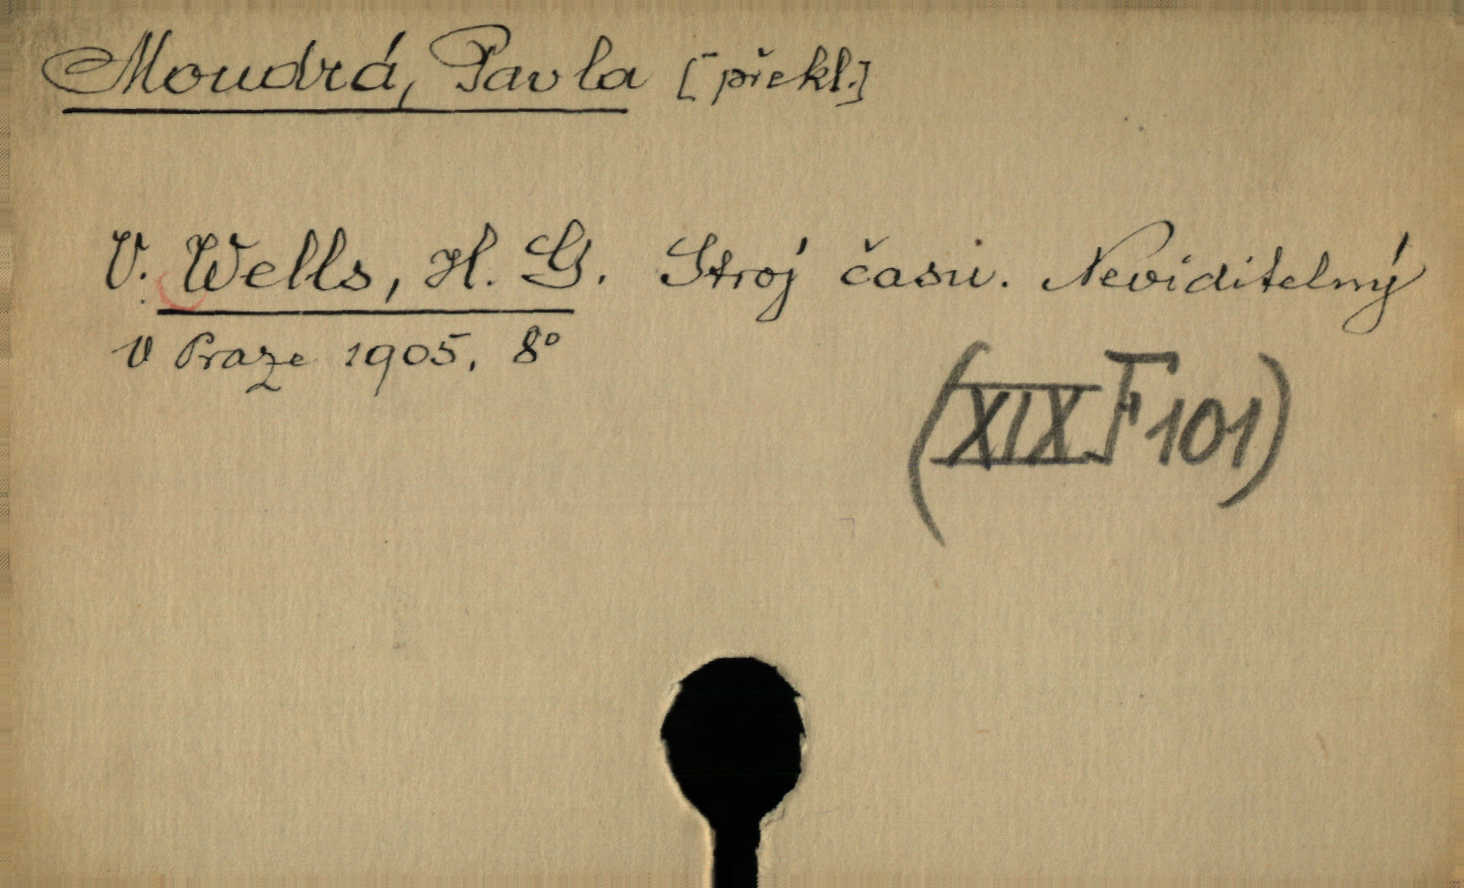 Moudrá, Pavla [překl.]
V. Wells, H. G. Stroj času. Neviditelný
V Praze 1905, 8°
(XIX F 101)